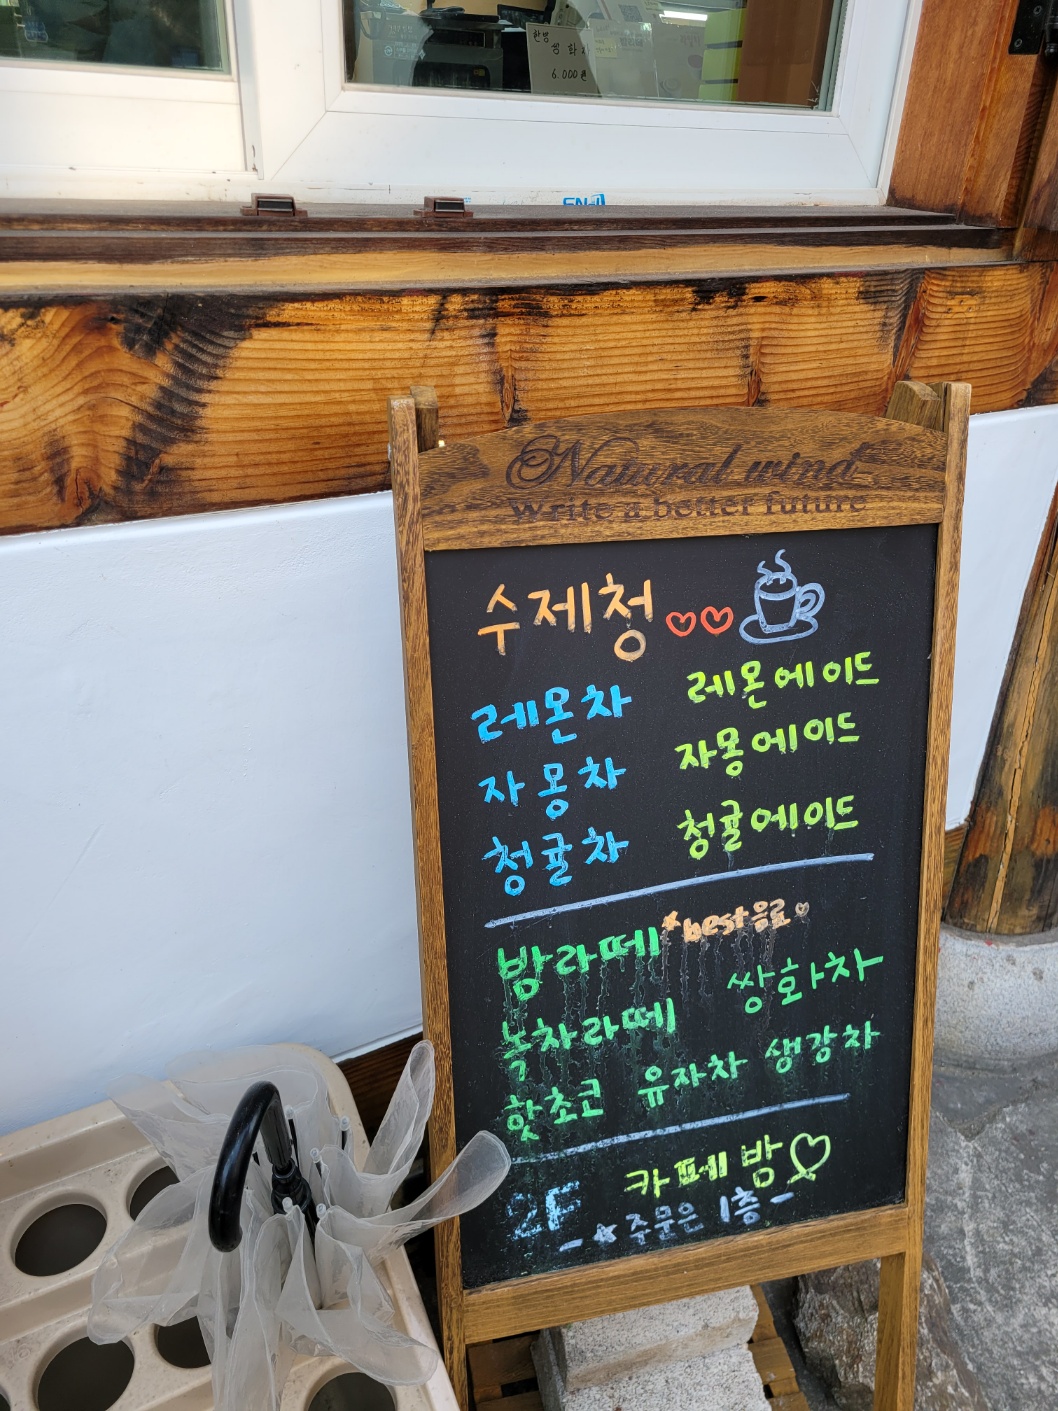 한방
쌍화차
6.000원
Natural wind
write a better future
수제청
레몬차 레몬에이드
자몽차 자몽에이드
청귤차 청귤에이드
밤라떼 best음료
녹차라떼 쌍화차
핫초코 유자차 생강차
2F 카페 밤
- 주문은 1층 -